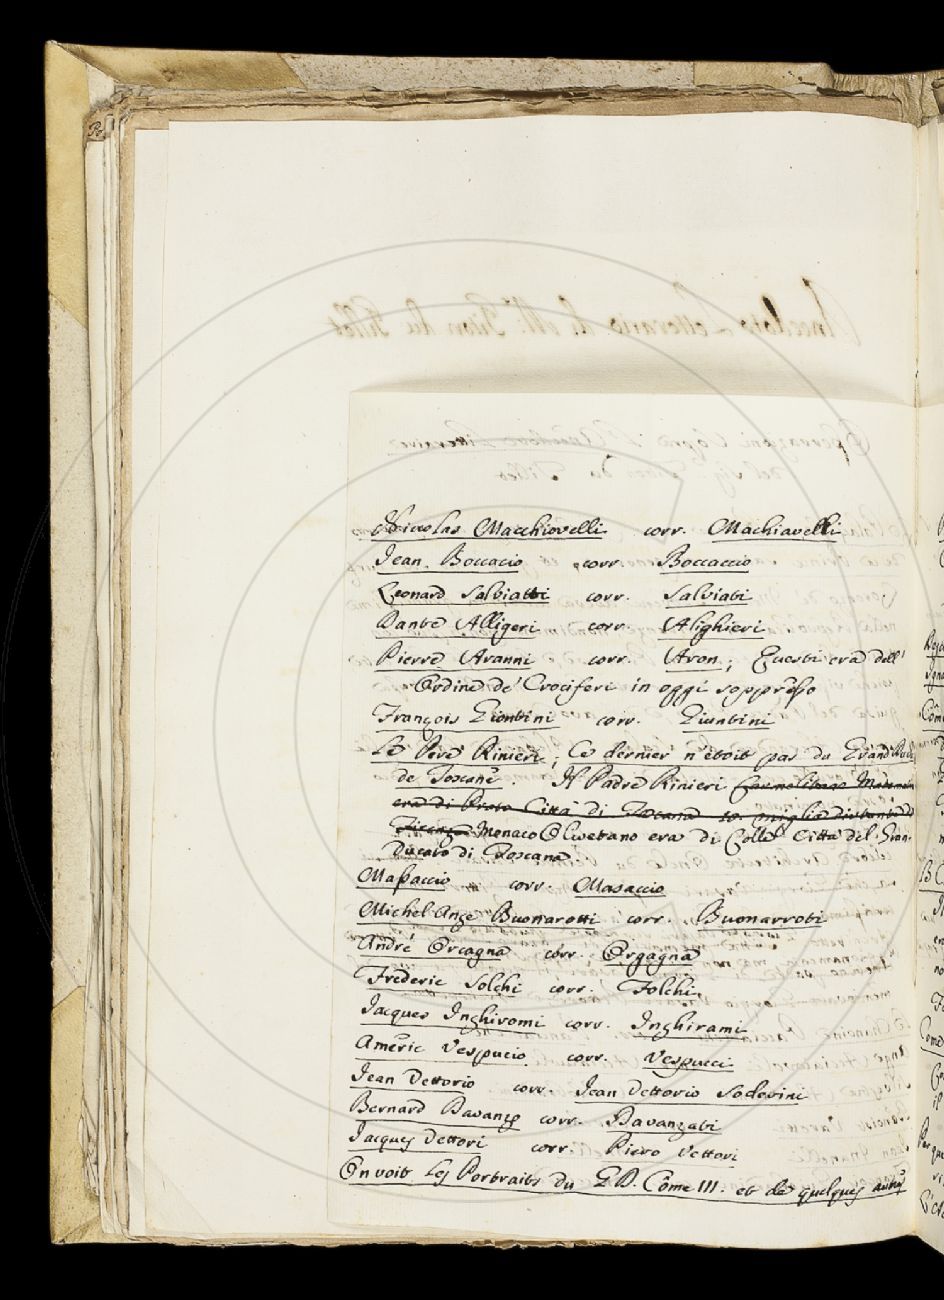 Nicolas Macchiovelli corr. Machiavelli
Jean Boccacio corr. Boccaccio
Leonard Salviatti corr. Salviati
Dante Alligeri corr. Alighieri
Pierre Aranni corr. Aron; Questi era dell'
Ordine de' Crociferi in oggi soppresso
François Giontini corr. Giuntini
Le Pere Rinieri; Ce dernier n'etoit pas du Grand Duché
de Toscane. Il Padre Rinieri
era di Prato Città di Toscana 10. miglia distante da
Firenze Monaco Olivetano era di Colle Città del Gran-
ducato di Toscana
Massaccio corr. Masaccio
Michel-Ange Buonarotti corr. Buonarroti
André Orcagna corr. Orgagna
Frederic Solchi corr. Folchi
Jacques Inghiromi corr. Inghirami
Americ Vespucio corr. Vespucci
Jean Vettorio corr. Jean Vettorio Soderini
Bernard Davanzo corr. Davanzati
Jacques Vettori corr. Piero Vettori
On voit les Portraits du G.D. Côme III. et de quelques autres